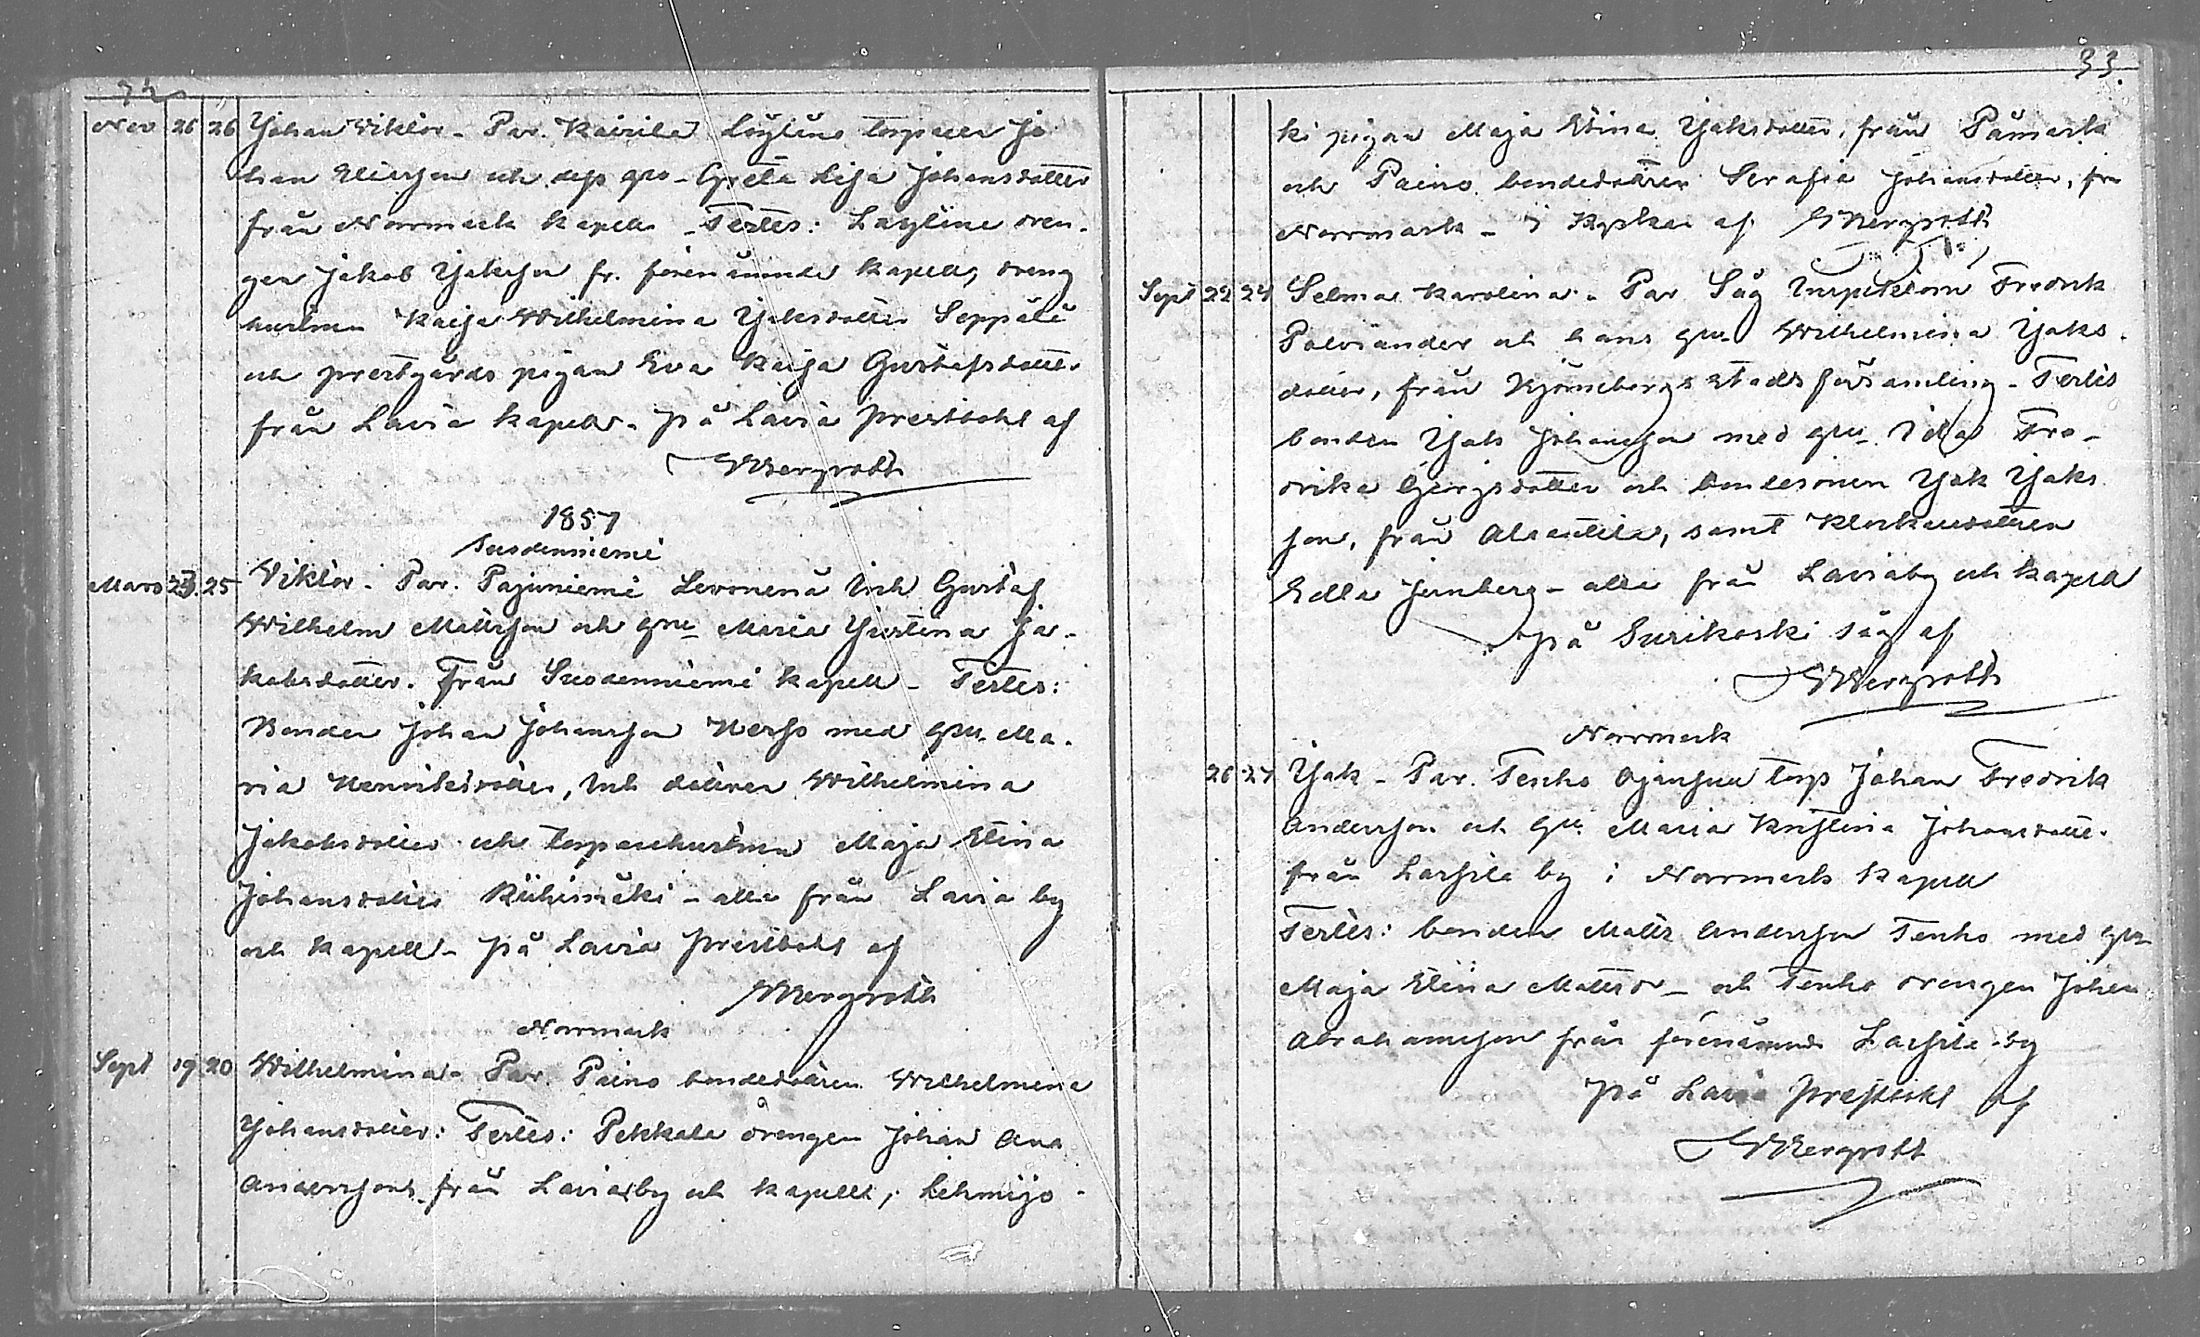 Nov 26 26 Johan Viktor - Par. Kairila torparen Jo
han Eliasson och dess qvo - Greta Lisa Johansdotter
från Norrmark kapell - Testes: Layline dren-
gen Jakob Jaksson fr. förenämnde kapell, dreng
hustrun Kaisa Wilhelmina Jaksdotter Seppälä
och prestgårds pigan Eva Kaisa Gustafsdotter
från Lavia kapell. på Lavia prestbohl af
Wergroth
1857
Suodenniemi
Mars 23. 25 Viktor - Par. Pajuniemi Levonena inh Gustaf
Wilhelm Mattsson och qvu Maria Justina Ja-
kobsdotter. Från Suodenniemi kapell - Testes:
Bonden Johan Johansson Herss med qvu. Ma-
ria Henriksdotter, inh dottren Wilhelmina
Jakobsdotter och torparehustrun Maja Stina
Johansdotter Riihimäki - alla från Lavia by
och kapell - på Lavia prestbohl af
Wergroth
Norrmark
Sept 19 20 Wilhelmina - Par. Paino bondedottren Wilhelmina
Johansdotter: Testes: Pekkala drengen Johan And
Andersson från Laviaby och kapell, Lehmijo-
33.
ki pigan Maja Stina Jaksdotter, från Påmark
och Paino bondedottren Serafia Johansdotter, från
Norrmark - i Kyrkan af Wergroth
Sept 22 24 Selma Karolina - Par Såg Inspektorn Fredrik
Palviander och hans qvu Wilhelmina Jaks-
dotter, från Björneborgs stads församling - Testes
bonden Jak Johansson med qvu Ida Fre-
drika Georgsdotter och bondesonen Jak Jaks
son, från Alanttila, samt Klockaredottren
Edla Jernberg - alla från Laviaby och kapell
på Surikoski såg af
Wergroth
Norrmark
26 27 Jak - Par. Tenho Ojansuu torp Johan Fredrik
Andersson och Qvu Maria Kristina Johansdotter
från Lassila by i Norrmark kapell
Testes: bonden Matts Andersson Tenho med qvu
Maja Stina Mattsdr - och Tenho drengen Johan
Abrahamsson från förenämnde Lassila by
på Lavia prestbohl af
Wergroth